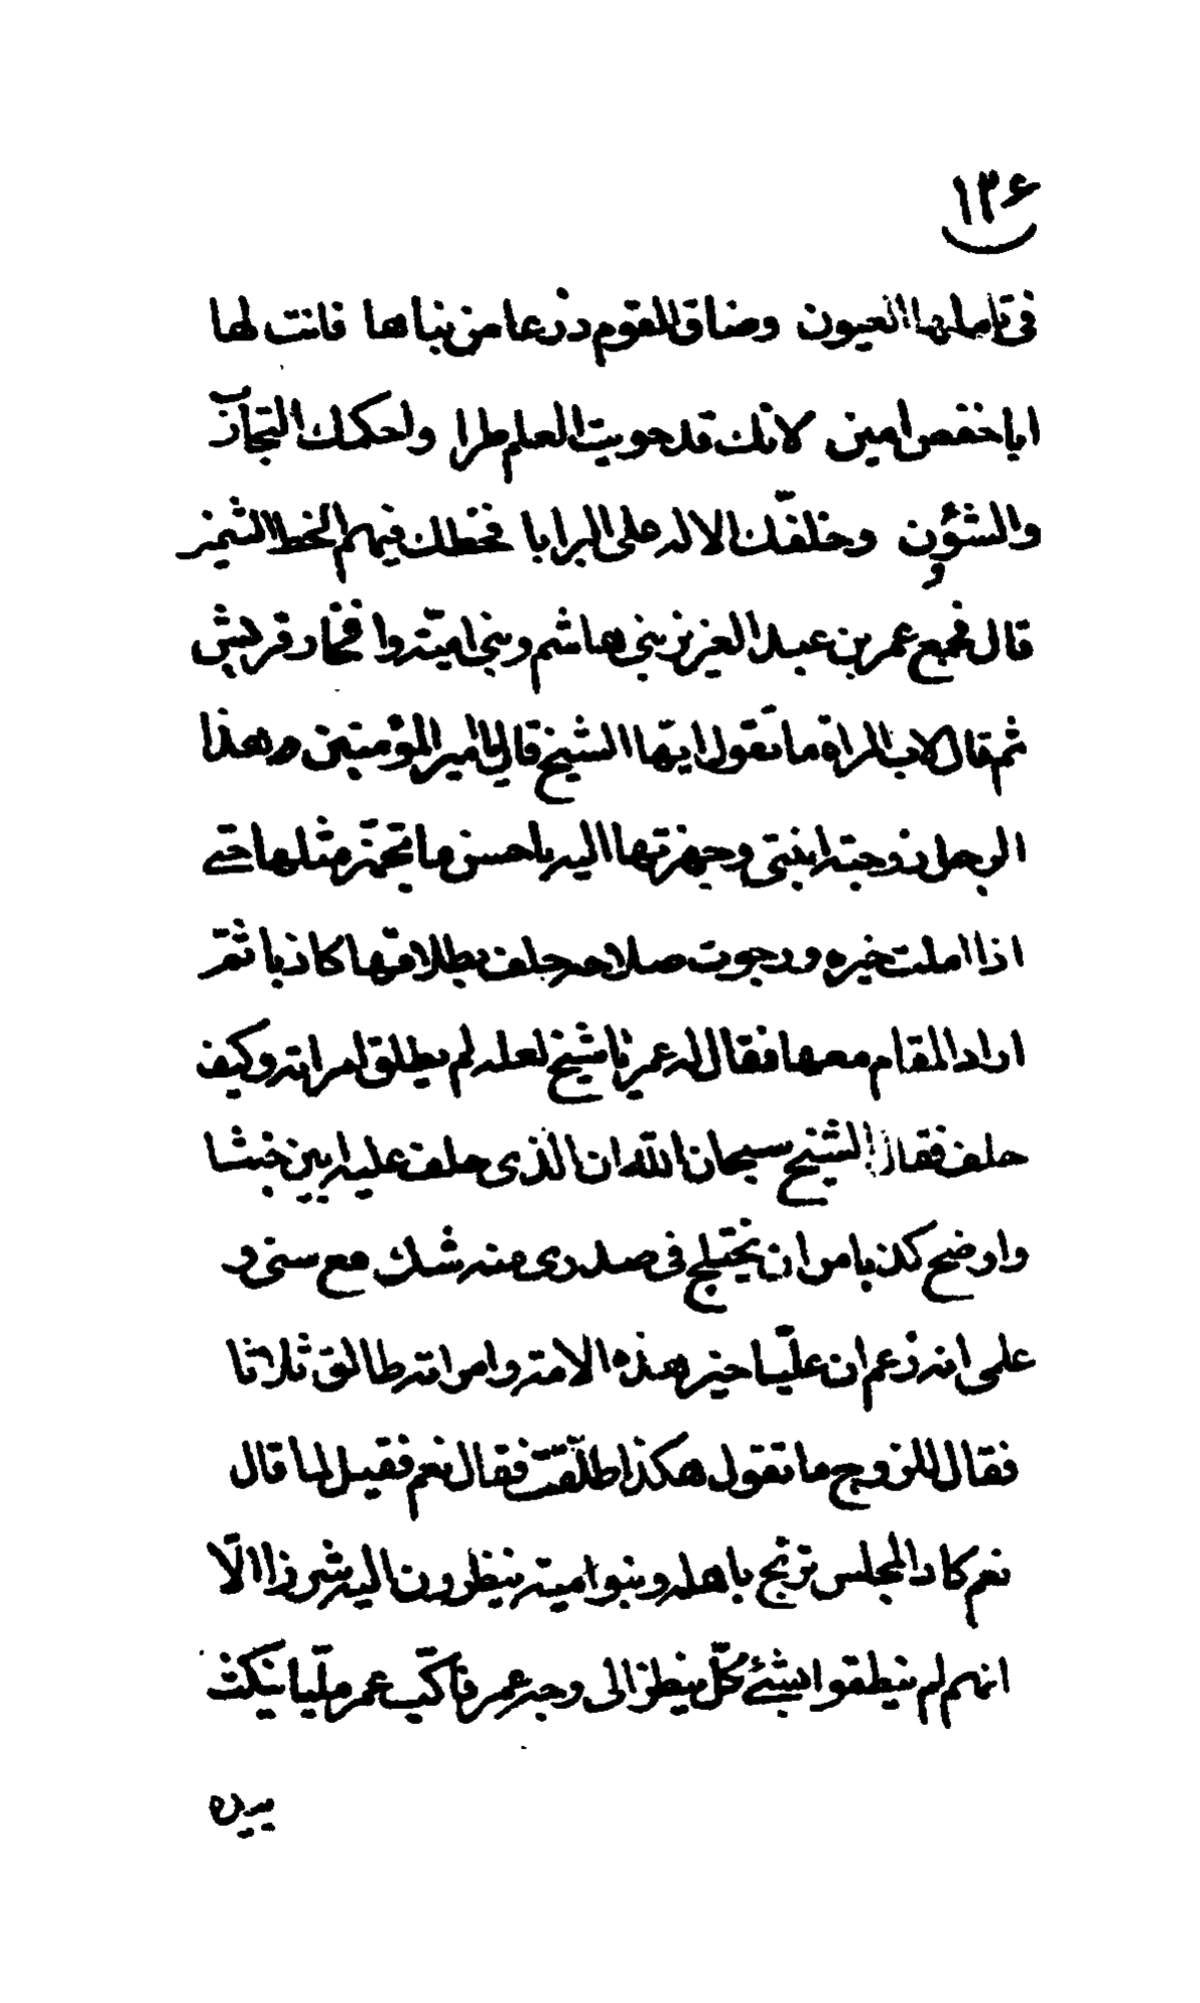 ۱۳۶
فى تاملها العيون وضاق القوم ذرعا من نباها فانت لها
ابا حفص امين لانك قد حويت العلم طرا واحكمك التجارب
والشؤن وخلفّك الاله على البرايا فحظك فيهم الحظ الثمين
قال فجمع عمر بن عبد العزيز بنى هاشم وبنى اميّة وافخاذ قريش
ثم قال لاب المراة ما تقول ايّها الشيخ قال يا امير المؤمنين هذا
الرجل زوجته ابنتى وجهزتها اليه باحسن ما تجهّز مثلها حتى
اذا املت خيره ورجوت صلاحه حلف بطلاقها كاذبا ثمّ
اراد المقام معها فقال له عمر يا شيخ لعله لم يطلق امراته وكيف
حلف فقال الشيخ سبحان الله ان الذى حلف عليه ابين حنثا
واوضح كذبا من ان يختلج فى صدرى منه شك مع سنى و
علمى انه زعم ان عليّا خير هذه الامة وامراته طالق ثلاثا
فقال للزوج ما تقول هكذا طلّقت فقال نعم فقيل لما قال
نعم كاد المجلس ترتج باهله وبنوا مية ينظرون اليه شرزا الّا
انهم لم ينطقوا بشئ كلّ ينظر الى وجه عمر فاكبّ عمر مليّا ينكث
بيده